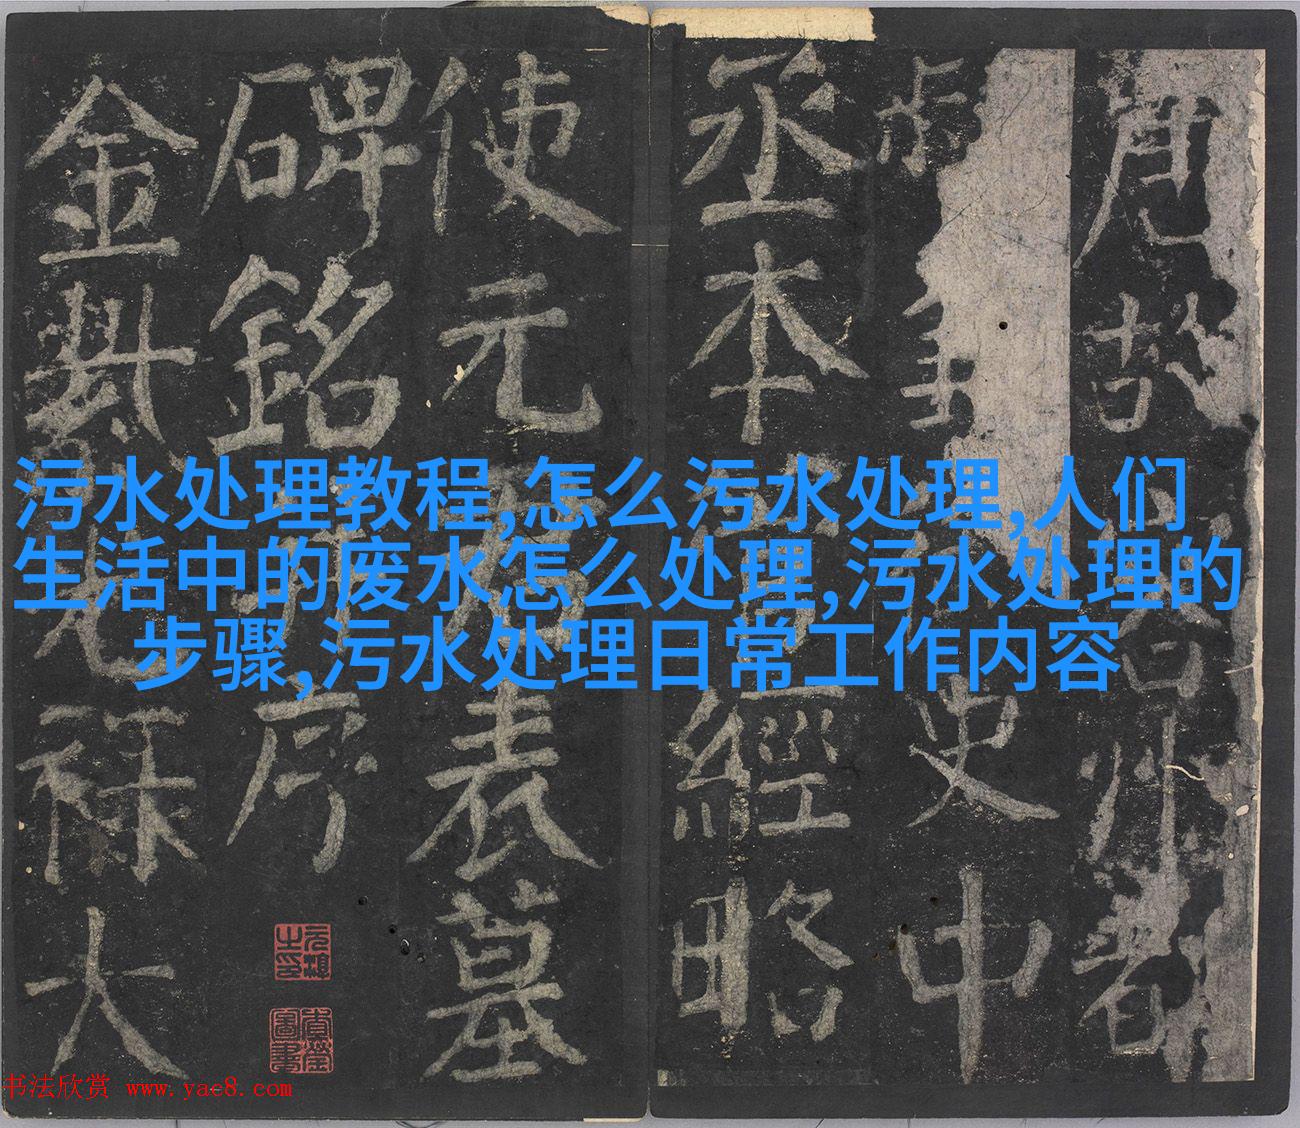 唐故容州都
史中
丞本管經略
使元君表墓
碑銘并序
金紫光祿大
污水处理教程,怎么污水处理,人们
生活中的废水怎么处理,污水处理的
步骤,污水处理日常工作内容
书法欣赏 www.yac8.com